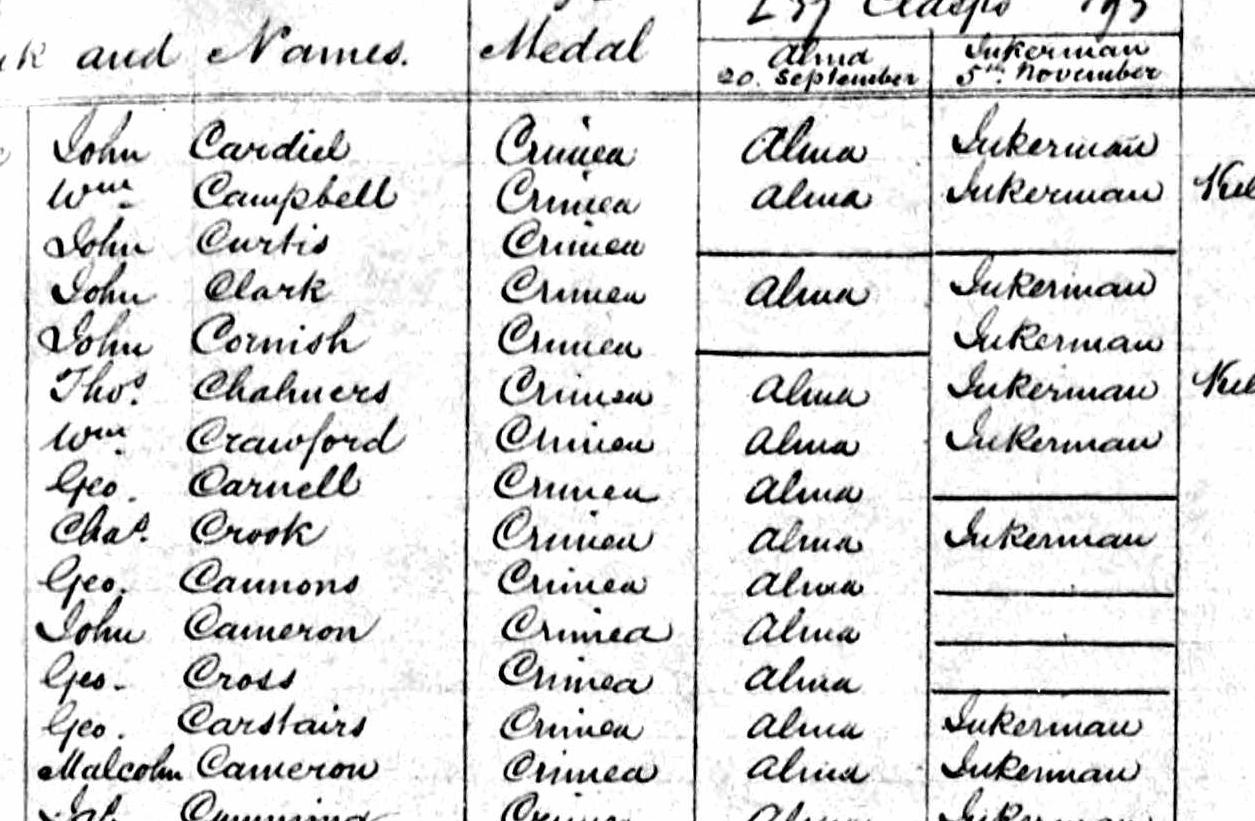 Clasps
and Names. Medal Alma Inkerman
20. September 5th November
John Cardiel Crimea Alma Inkerman
Wm Campbell Crimea Alma Inkerman
John Curtis Crimea
John Clark Crimea Alma Inkerman
John Cornish Crimea Inkerman
Thos. Chalmers Crimea Alma Inkerman
Wm Crawford Crimea Alma Inkerman
Geo. Carnell Crimea Alma
Chas. Crook Crimea Alma Inkerman
Geo. Cannons Crimea Alma
John Cameron Crimea Alma
Geo. Cross Crimea Alma
Geo. Carstairs Crimea Alma Inkerman
Malcolm Cameron Crimea Alma Inkerman
Crimea Alma Inkerman